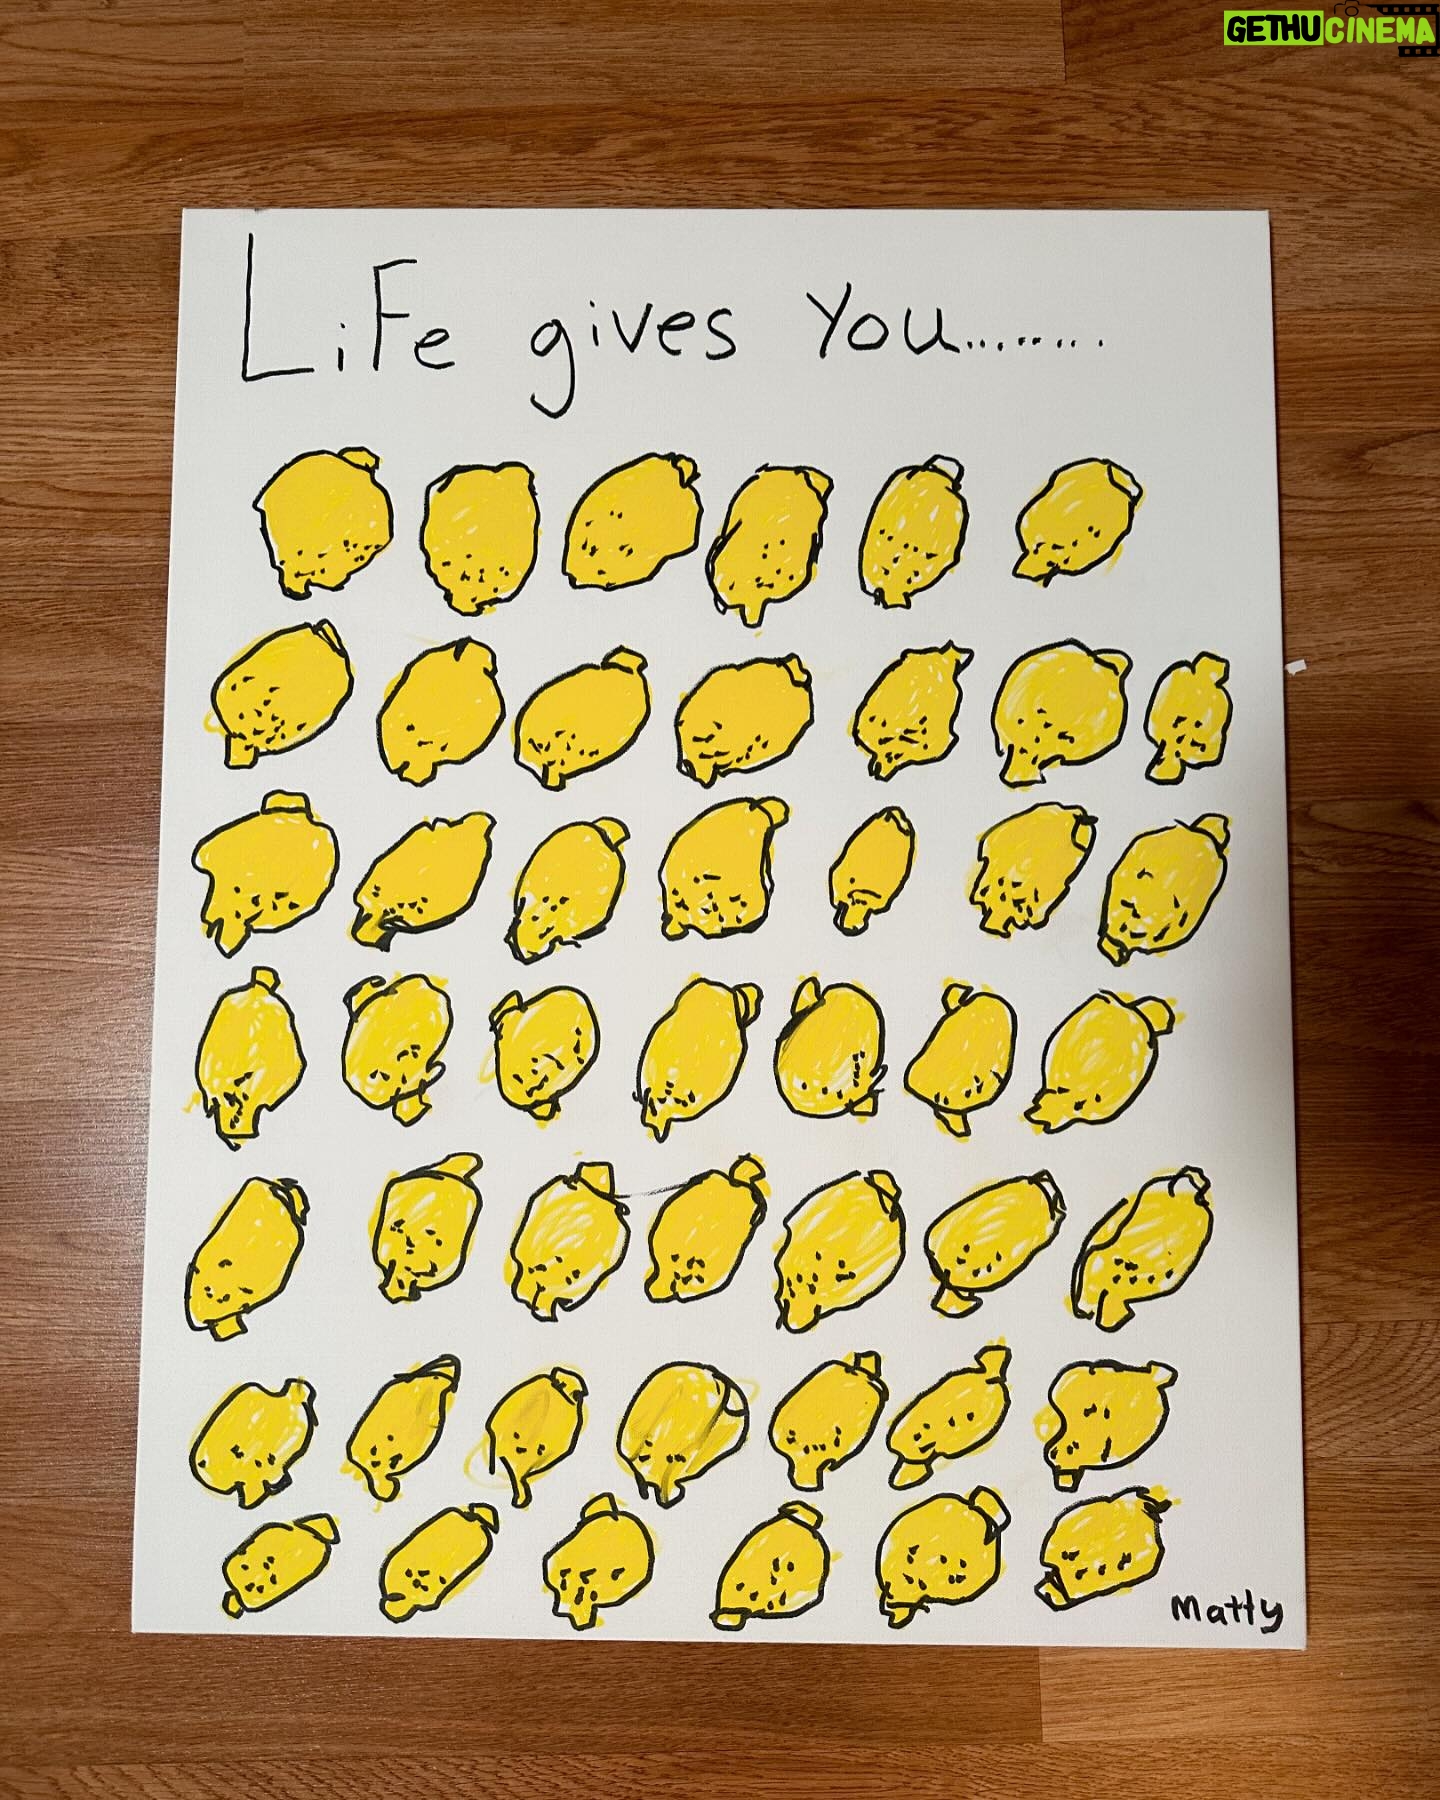 GETHUCINEMA
LiFe gives You........
Matty